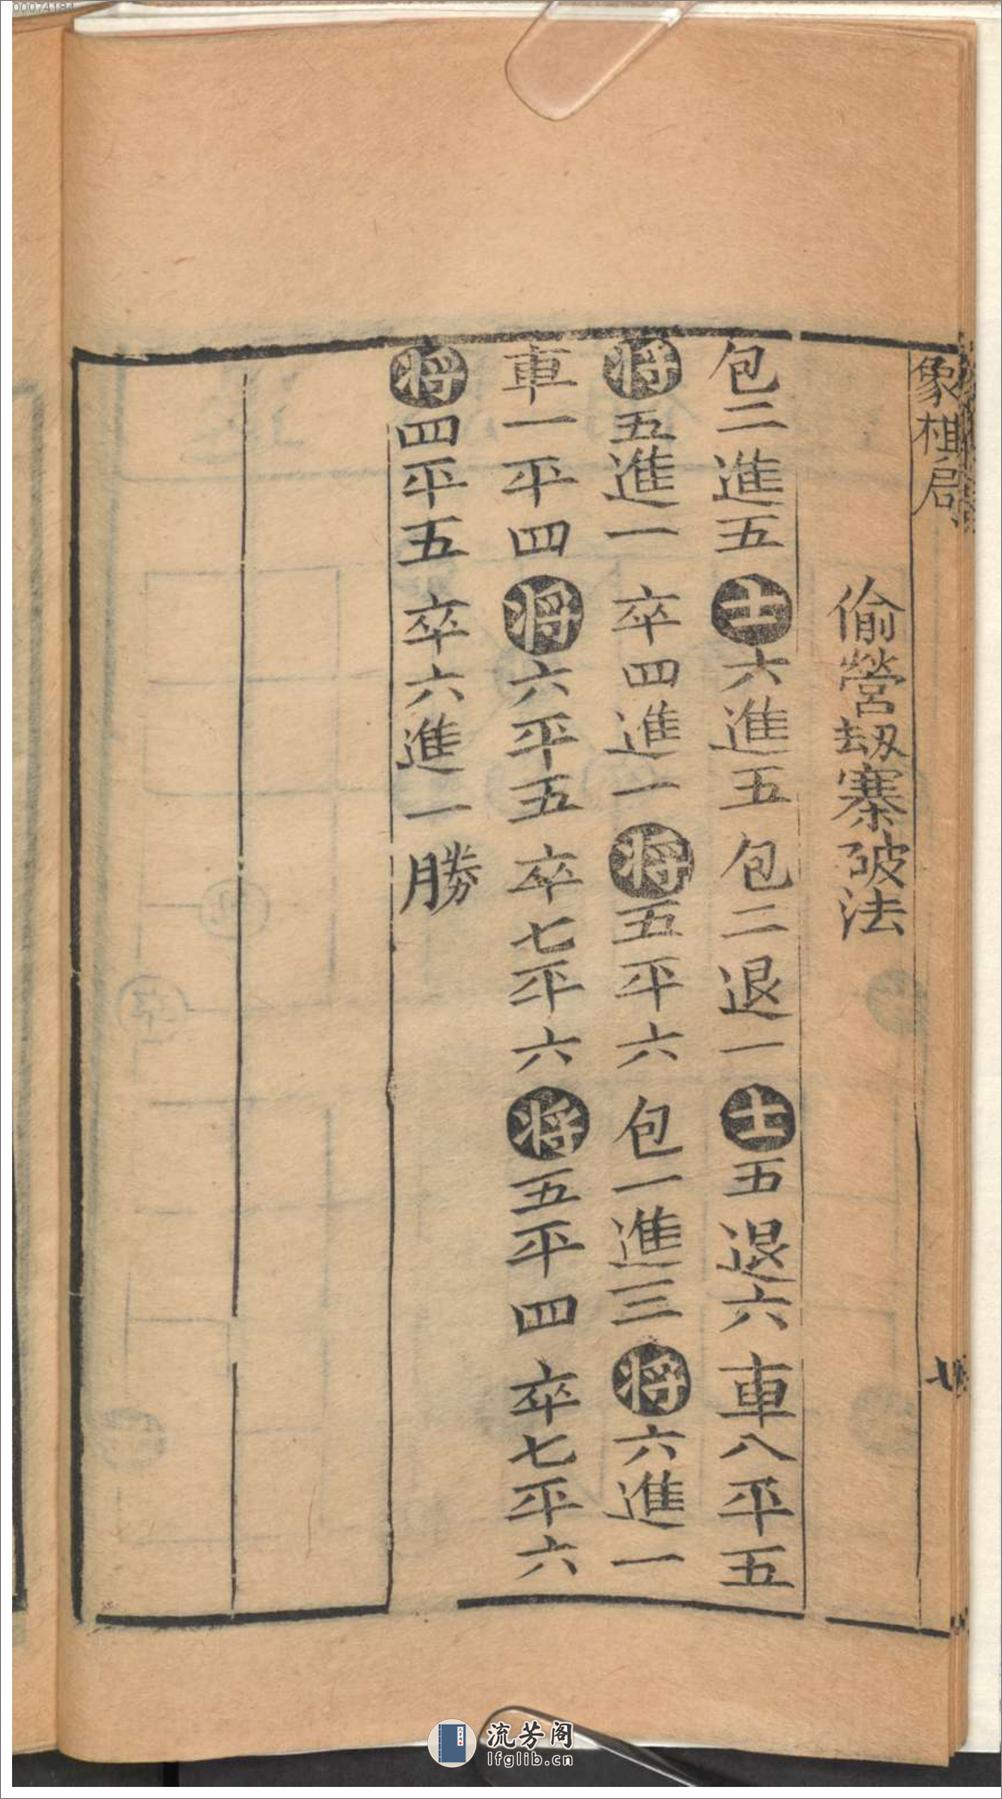 00074184
象棋局
七
偷營刼寨破法
包二進五 士六進五 包二退一 士五退六 車八平五
将五進一 卒四進一 将五平六 包一進三 将六進一
車一平四 将六平五 卒七平六 将五平四 卒七平六
将四平五 卒六進一 勝
流芳阁
lfglib.cn